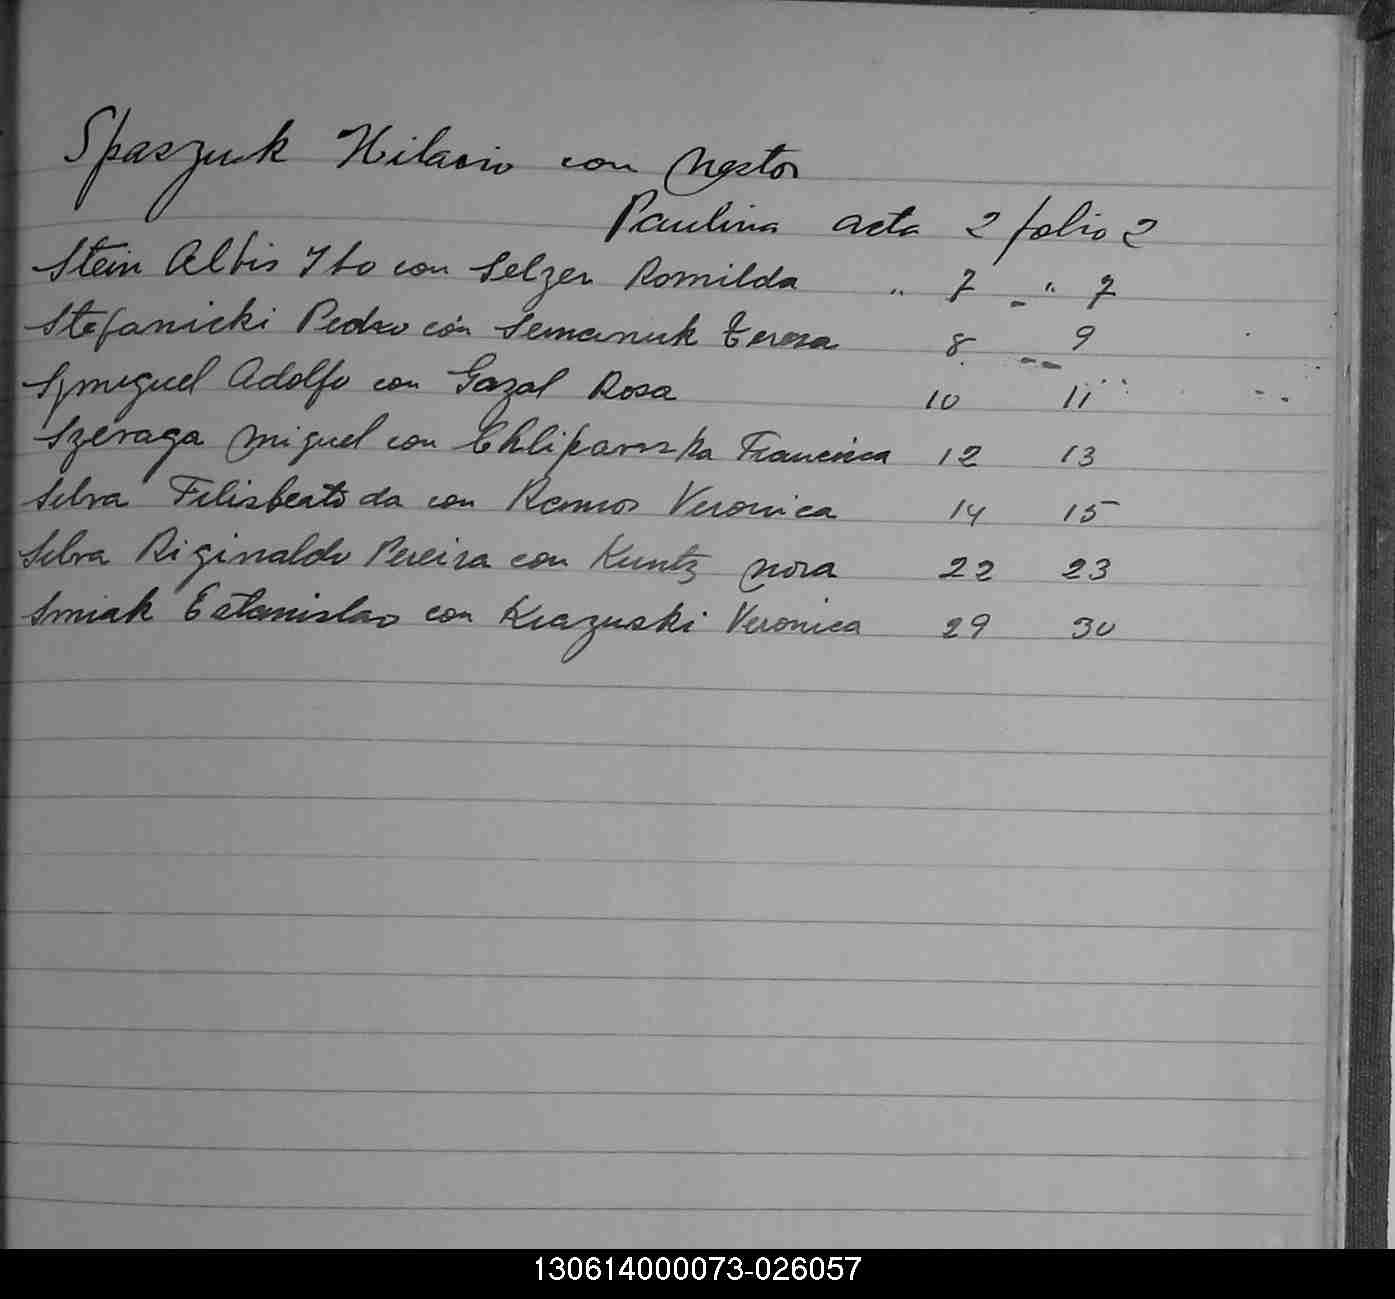 Spaszuk Hilario con Nestor
Paulina acta 2 folio 2
Stein Albis Ibo con Selzer Romilda " 7 - " 7
Stefanicki Pedro con Semeniuk Teresa 8 -- 9
Szmiguel Adolfo con Gazal Rosa 10 11
Szeraga Miguel con Francisca 12 13
Silva Filisberto da con Ramos Veronica 14 15
Silva Riginaldo Pereira con Kuntz Nora 22 23
Smiak Estanislao con Krazuski Veronica 29 30
130614000073-026057